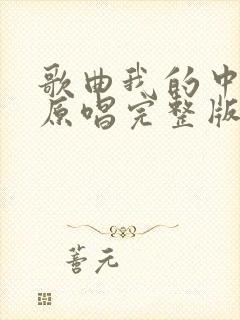 歌曲我的中
原唱完整版
善元